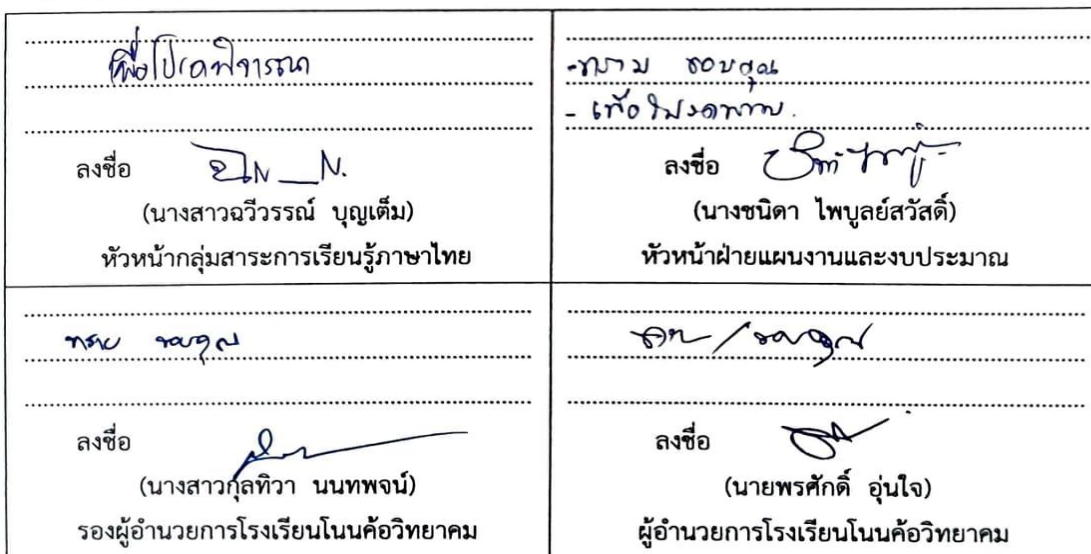 เพื่อโปรดพิจารณา
ลงชื่อ
(นางสาวฉวีวรรณ์ บุญเต็ม)
หัวหน้ากลุ่มสาระการเรียนรู้ภาษาไทย
-ทราบ ขอบคุณ
- เพื่อโปรดทราบ.
ลงชื่อ
(นางชนิดา ไพบูลย์สวัสดิ์)
หัวหน้าฝ่ายแผนงานและงบประมาณ
ทราบ ขอบคุณ
ลงชื่อ
(นางสาวกุลทิวา นนทพจน์)
รองผู้อำนวยการโรงเรียนโนนค้อวิทยาคม
ทราบ / ขอบคุณ
ลงชื่อ
(นายพรศักดิ์ อุ่นใจ)
ผู้อำนวยการโรงเรียนโนนค้อวิทยาคม